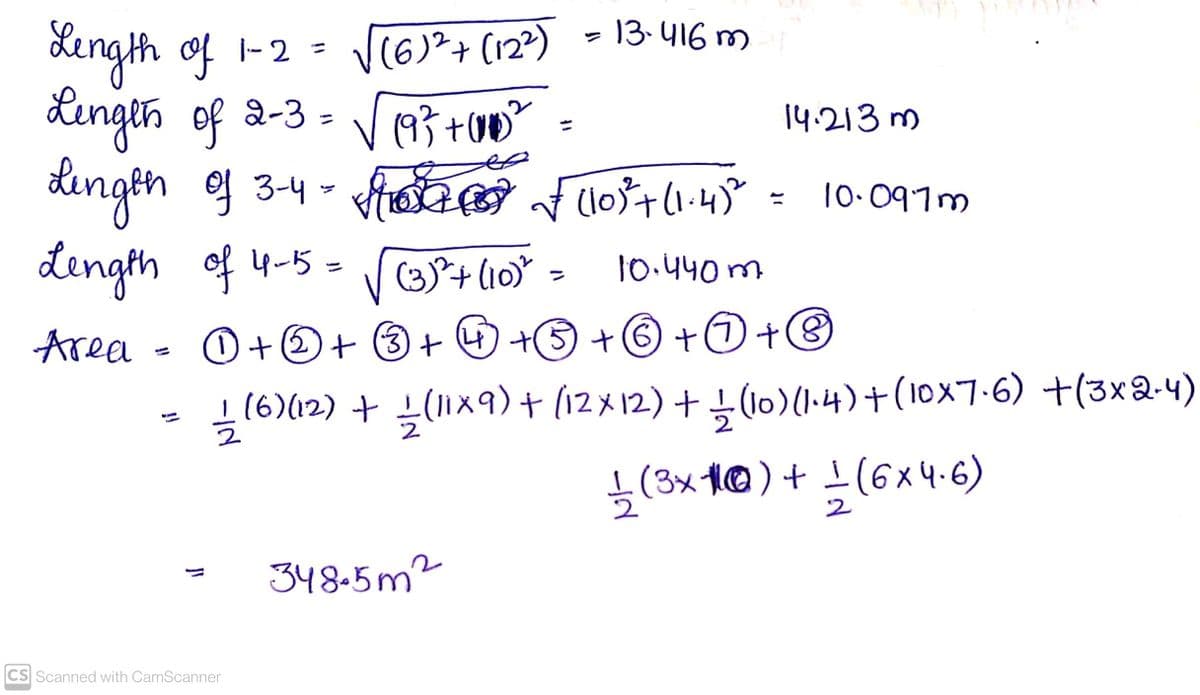 Length of 1-2 = √(6)²+(12²) = 13.416 m
Length of 2-3 = √(9)²+(11)² = 14.213 m
Length of 3-4 = √(10)²+(1.4)² = 10.097m
Length of 4-5 = √(3)²+(10)² = 10.440 m
Area = ①+②+③+④+⑤+⑥+⑦+⑧
= 1/2 (6)(12) + 1/2 (11×9) + (12×12) + 1/2 (10)(1.4) + (10×7.6) + (3×2.4)
1/2 (3×10) + 1/2 (6×4.6)
= 348.5m²
CS Scanned with CamScanner